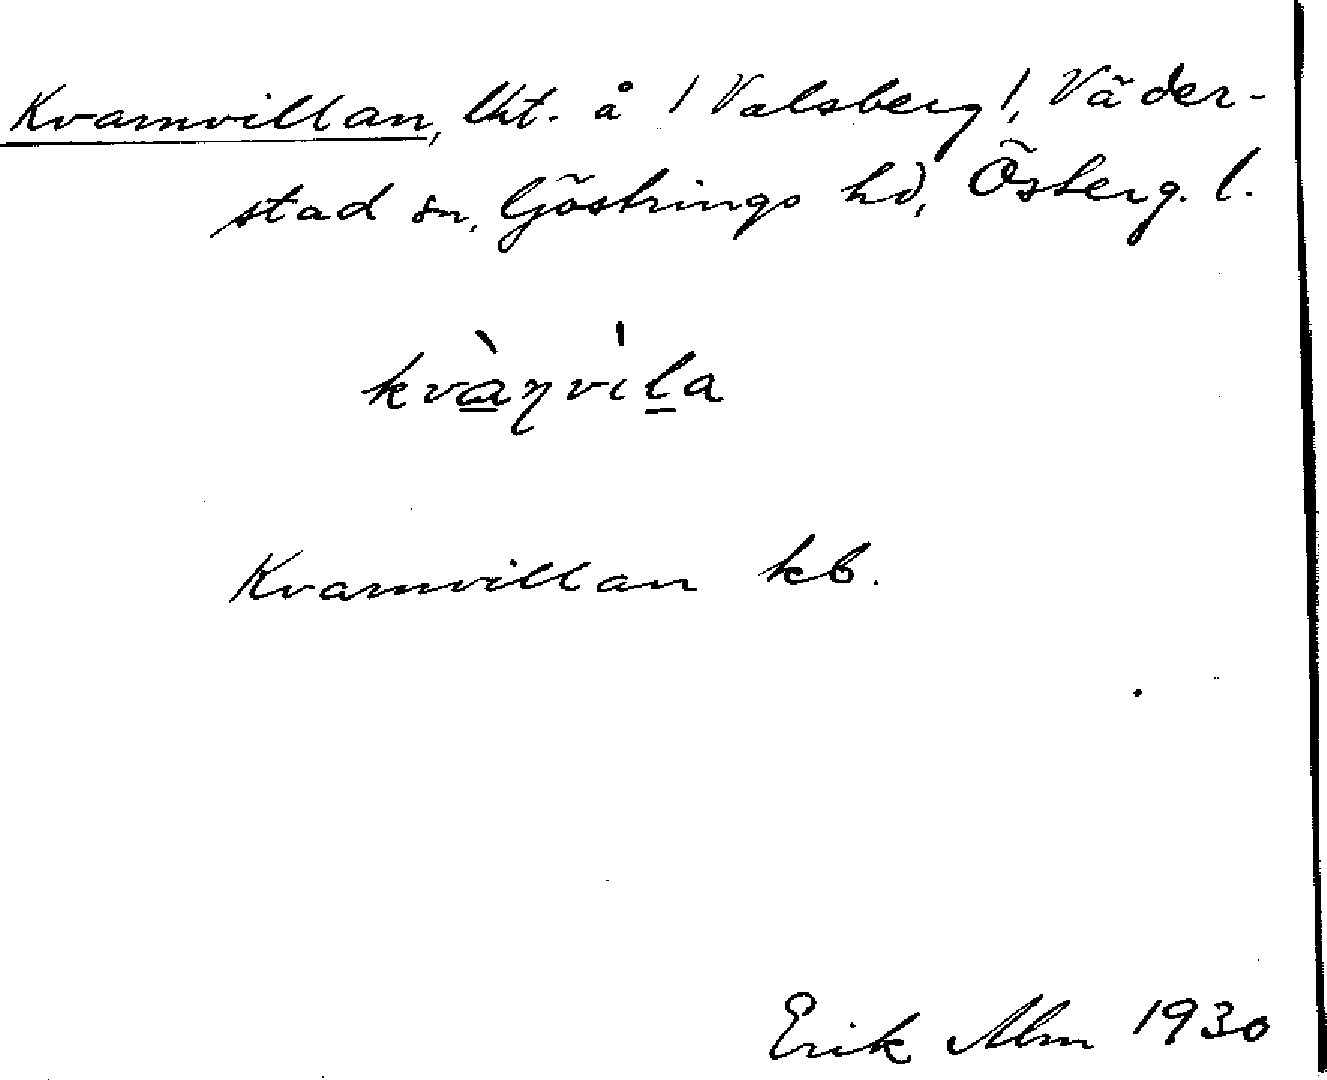 Kvarnvillan, lht. å / Valsberg /, Väder-
stad sn, Göstrings hd, Österg. l.
kvàṇvi̍l̲a
Kvarnvillan kb.
Erik Alm 1930